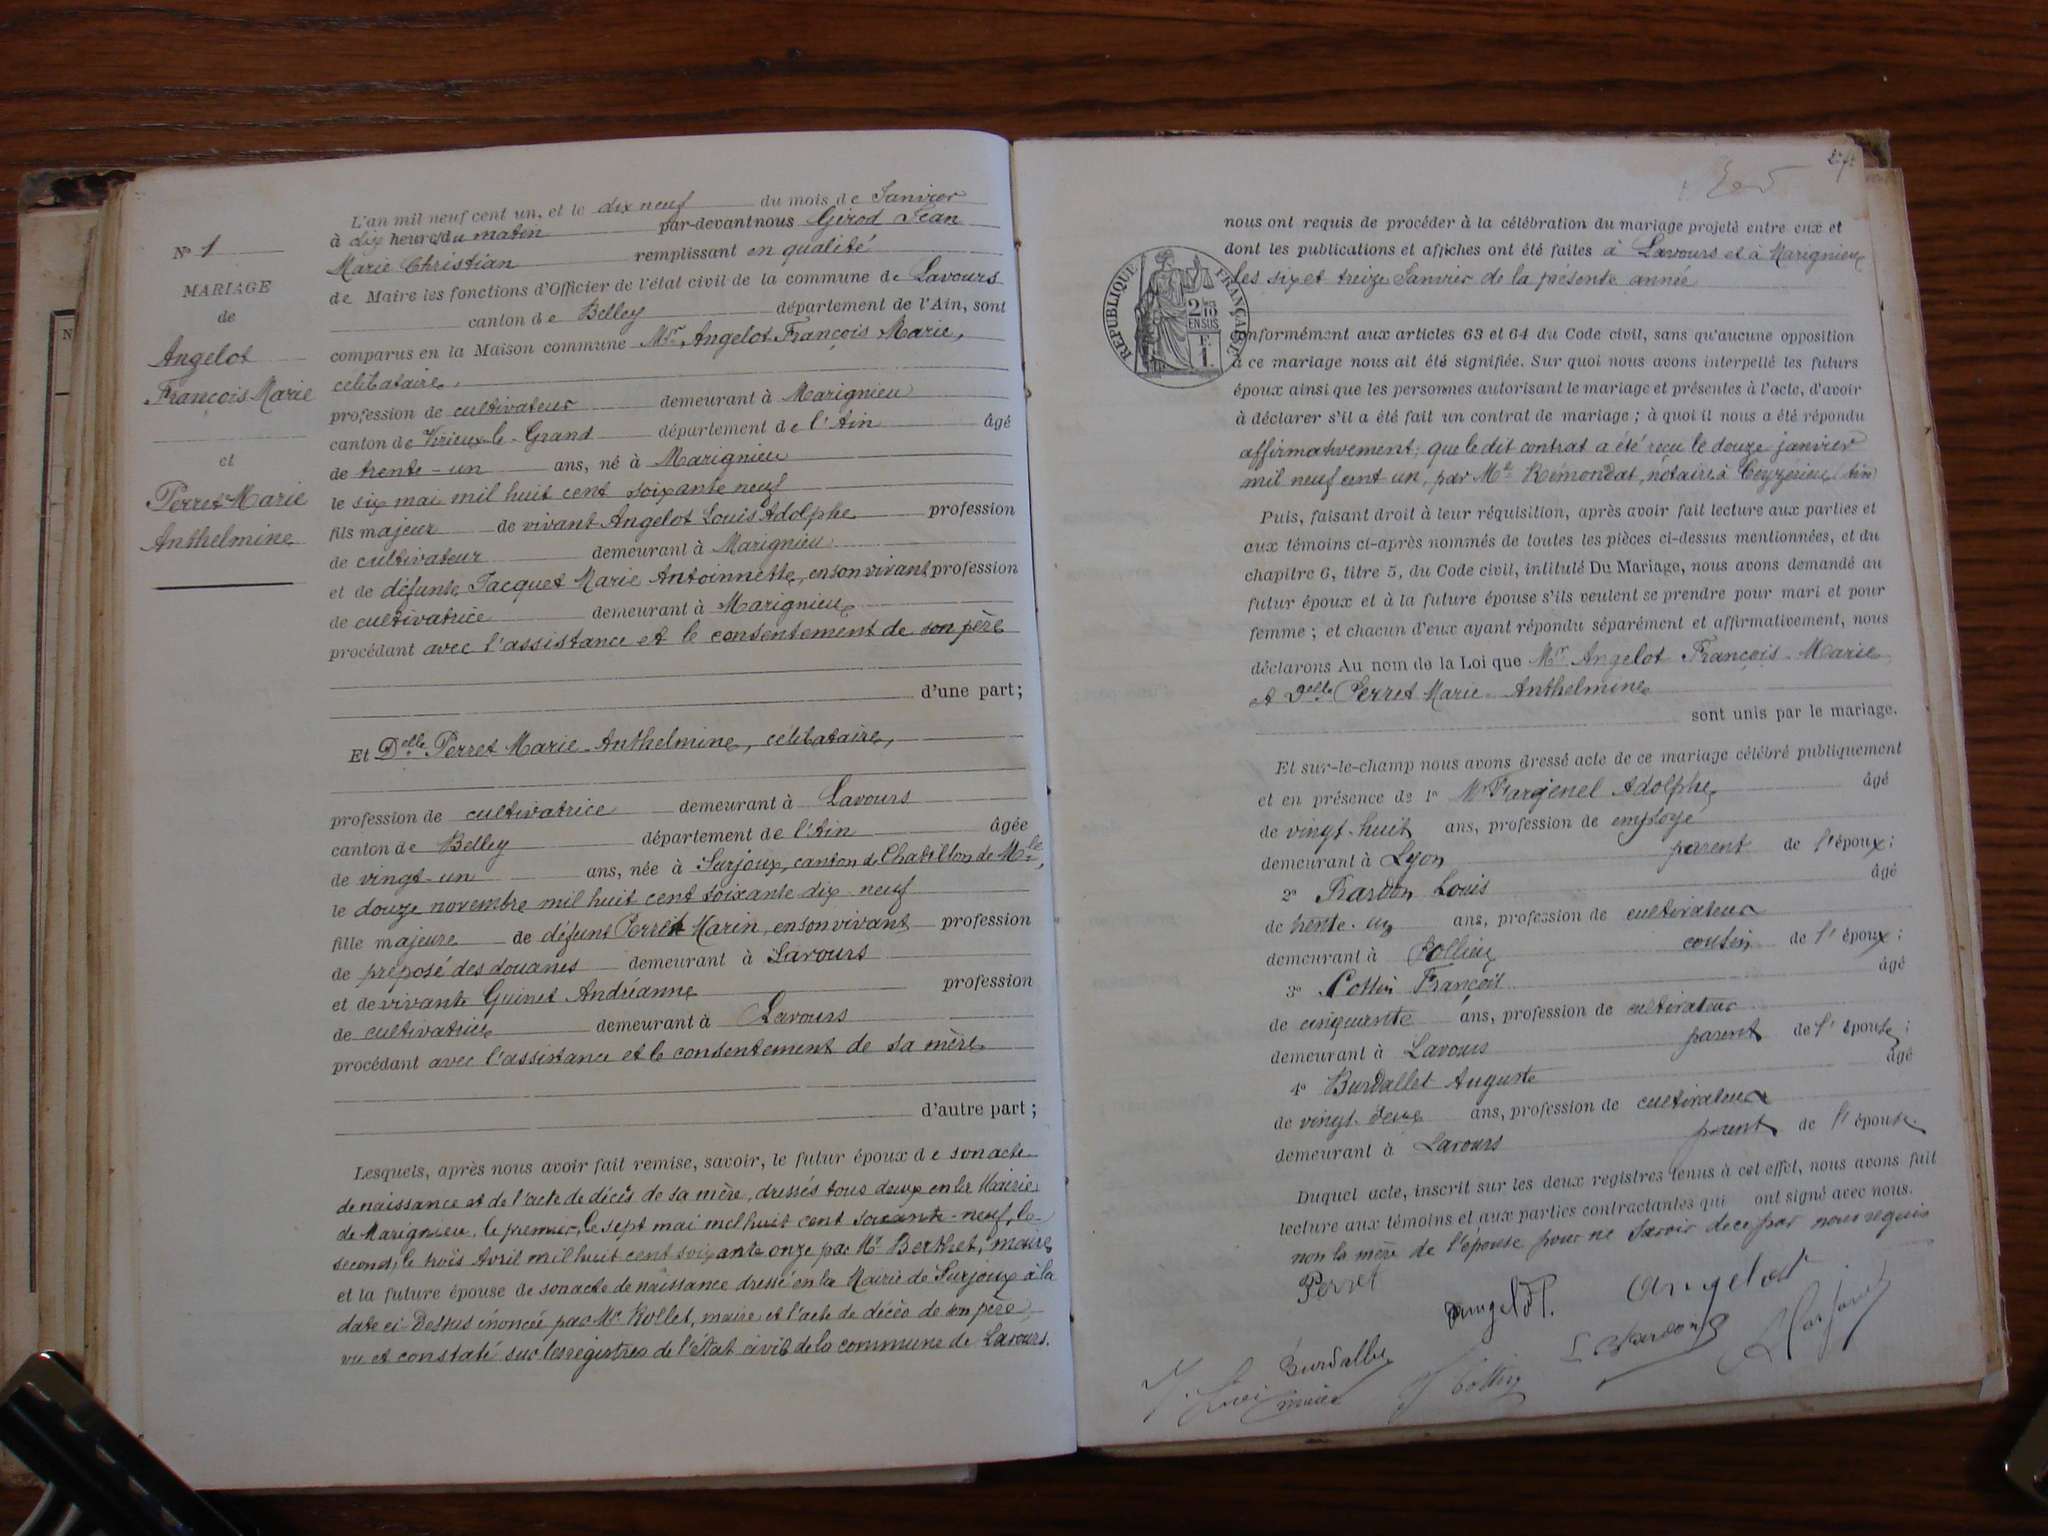 L'an mil neuf cent un, et le dix neuf du mois de Janvier
à dix heures du matin par-devant nous Girod Jean
Marie Christian remplissant en qualité
de Maire les fonctions d'Officier de l'état civil de la commune de Lavours
canton de Belley département de l'Ain, sont
comparus en la Maison commune Mr Angelot François Marie,
célibataire,
profession de cultivateur demeurant à Marignieu
canton de Virieux-le-Grand département de l'Ain âgé
de trente-un ans, né à Marignieu
le six mai mil huit cent soixante neuf
fils majeur de vivant Angelot Louis Adolphe profession
de cultivateur demeurant à Marignieu
et de défunte Jacquet Marie Antoinnette, en son vivant profession
de cultivatrice demeurant à Marignieu
procédant avec l'assistance et le consentement de son père
d'une part;
Et Delle Perret Marie-Anthelmine, célibataire,
profession de cultivatrice demeurant à Lavours
canton de Belley département de l'Ain âgée
de vingt-un ans, née à Surjoux, canton de Chatillon de Mlle,
le douze novembre mil huit cent soixante dix neuf
fille majeure de défunt Perret Marin, en son vivant profession
de préposé des douanes demeurant à Lavours
et de vivante Guinet Andréanne profession
de cultivatrice demeurant à Lavours
procédant avec l'assistance et le consentement de sa mère
d'autre part;
Lesquels, après nous avoir fait remise, savoir, le futur époux de son acte
de naissance et de l'acte de décès de sa mère, dressés tous deux en la Mairie
de Marignieu, le premier, le sept mai mil huit cent soixante-neuf, le
second, le trois Avril mil huit cent soixante onze par Mr Berthet, maire,
et la future épouse de son acte de naissance dressé en la Mairie de Surjoux à la
date ci-Dessus énoncée par Mr Rollet, maire et l'acte de décès de son père,
vu et constaté sur les registres de l'état civil de la commune de Lavours.
N° 1
MARIAGE
de
Angelot
François Marie
et
Perret Marie
Anthelmine
nous ont requis de procéder à la célébration du mariage projeté entre eux et
dont les publications et affiches ont été faites à Lavours et à Marignieu
les six et treize Janvier de la présente année
RÉPUBLIQUE FRANÇAISE
2/10 EN SUS
1 F.
conformément aux articles 63 et 64 du Code civil, sans qu'aucune opposition
à ce mariage nous ait été signifiée. Sur quoi nous avons interpellé les futurs
époux ainsi que les personnes autorisant le mariage et présentes à l'acte, d'avoir
à déclarer s'il a été fait un contrat de mariage; à quoi il nous a été répondu
affirmativement; que le dit contrat a été reçu le douze janvier
mil neuf cent un, par Me Rémondat, notaire à Ceyzérieu (Ain)
Puis, faisant droit à leur réquisition, après avoir fait lecture aux parties et
aux témoins ci-après nommés de toutes les pièces ci-dessus mentionnées, et du
chapitre 6, titre 5, du Code civil, intitulé Du Mariage, nous avons demandé au
futur époux et à la future épouse s'ils veulent se prendre pour mari et pour
femme; et chacun d'eux ayant répondu séparément et affirmativement, nous
déclarons Au nom de la Loi que Mr Angelot François-Marie
et Delle Perret Marie-Anthelmine
sont unis par le mariage.
Et sur-le-champ nous avons dressé acte de ce mariage célébré publiquement
et en présence de 1° Mr Fargenel Adolphe âgé
de vingt-huit ans, profession de employé
demeurant à Lyon parent de l'époux;
2° Chardon Louis âgé
de trente-un ans, profession de cultivateur
demeurant à Pollieu cousin de l'époux;
3° Cottin François âgé
de cinquante ans, profession de cultivateur
demeurant à Lavours parent de l'épouse;
4° Burdallet Auguste âgé
de vingt-deux ans, profession de cultivateur
demeurant à Lavours parent de l'épouse.
Duquel acte, inscrit sur les deux registres tenus à cet effet, nous avons fait
lecture aux témoins et aux parties contractantes qui ont signé avec nous.
non la mère de l'épouse pour ne savoir de ce par nous requis
Perret Angelot Angelot
Burdallet Cottin L Chardon
maire